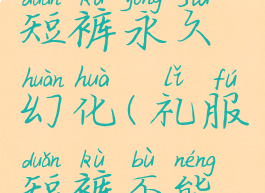 duǎn kù yǒng jiǔ
短裤永久
huàn huà lǐ fú
幻化(礼服
duǎn kù bù néng
短裤不能